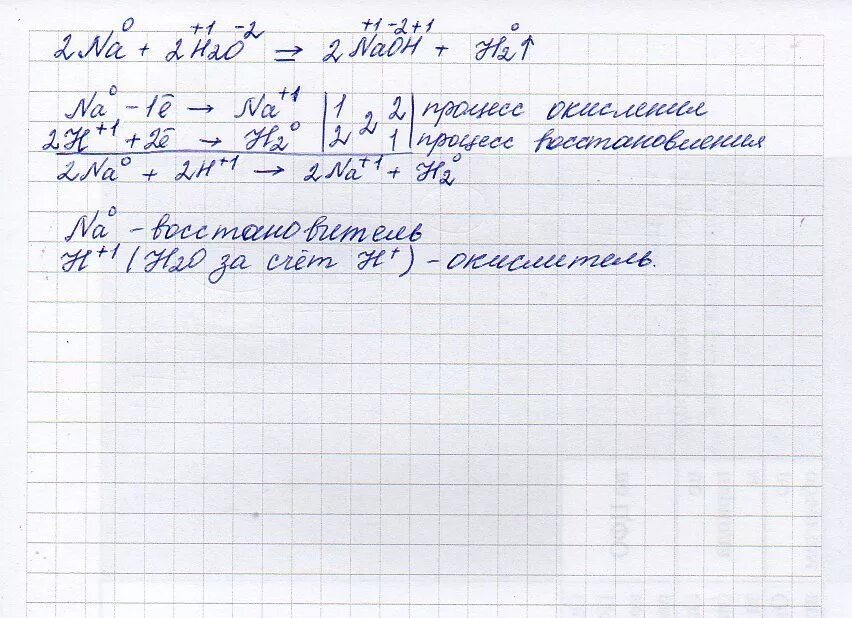 2Na⁰ + 2H₂⁺¹O⁻² = 2Na⁺¹O⁻²H⁺¹ + H₂⁰↑
Na⁰ - 1ē → Na⁺¹ | 1 2 2 | процесс окисления
2H⁺¹ + 2ē → H₂⁰ | 2 1 | процесс восстановления
2Na⁰ + 2H⁺¹ → 2Na⁺¹ + H₂⁰
Na⁰ - восстановитель
H⁺¹ (H2O за счёт H⁺) - окислитель.